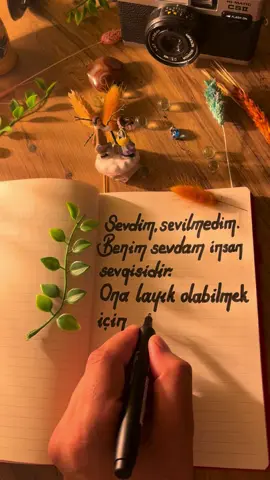 CS II
Sevdim, sevilmedim.
Benim sevdam insan
sevgisidir.
Ona layık olabilmek
için